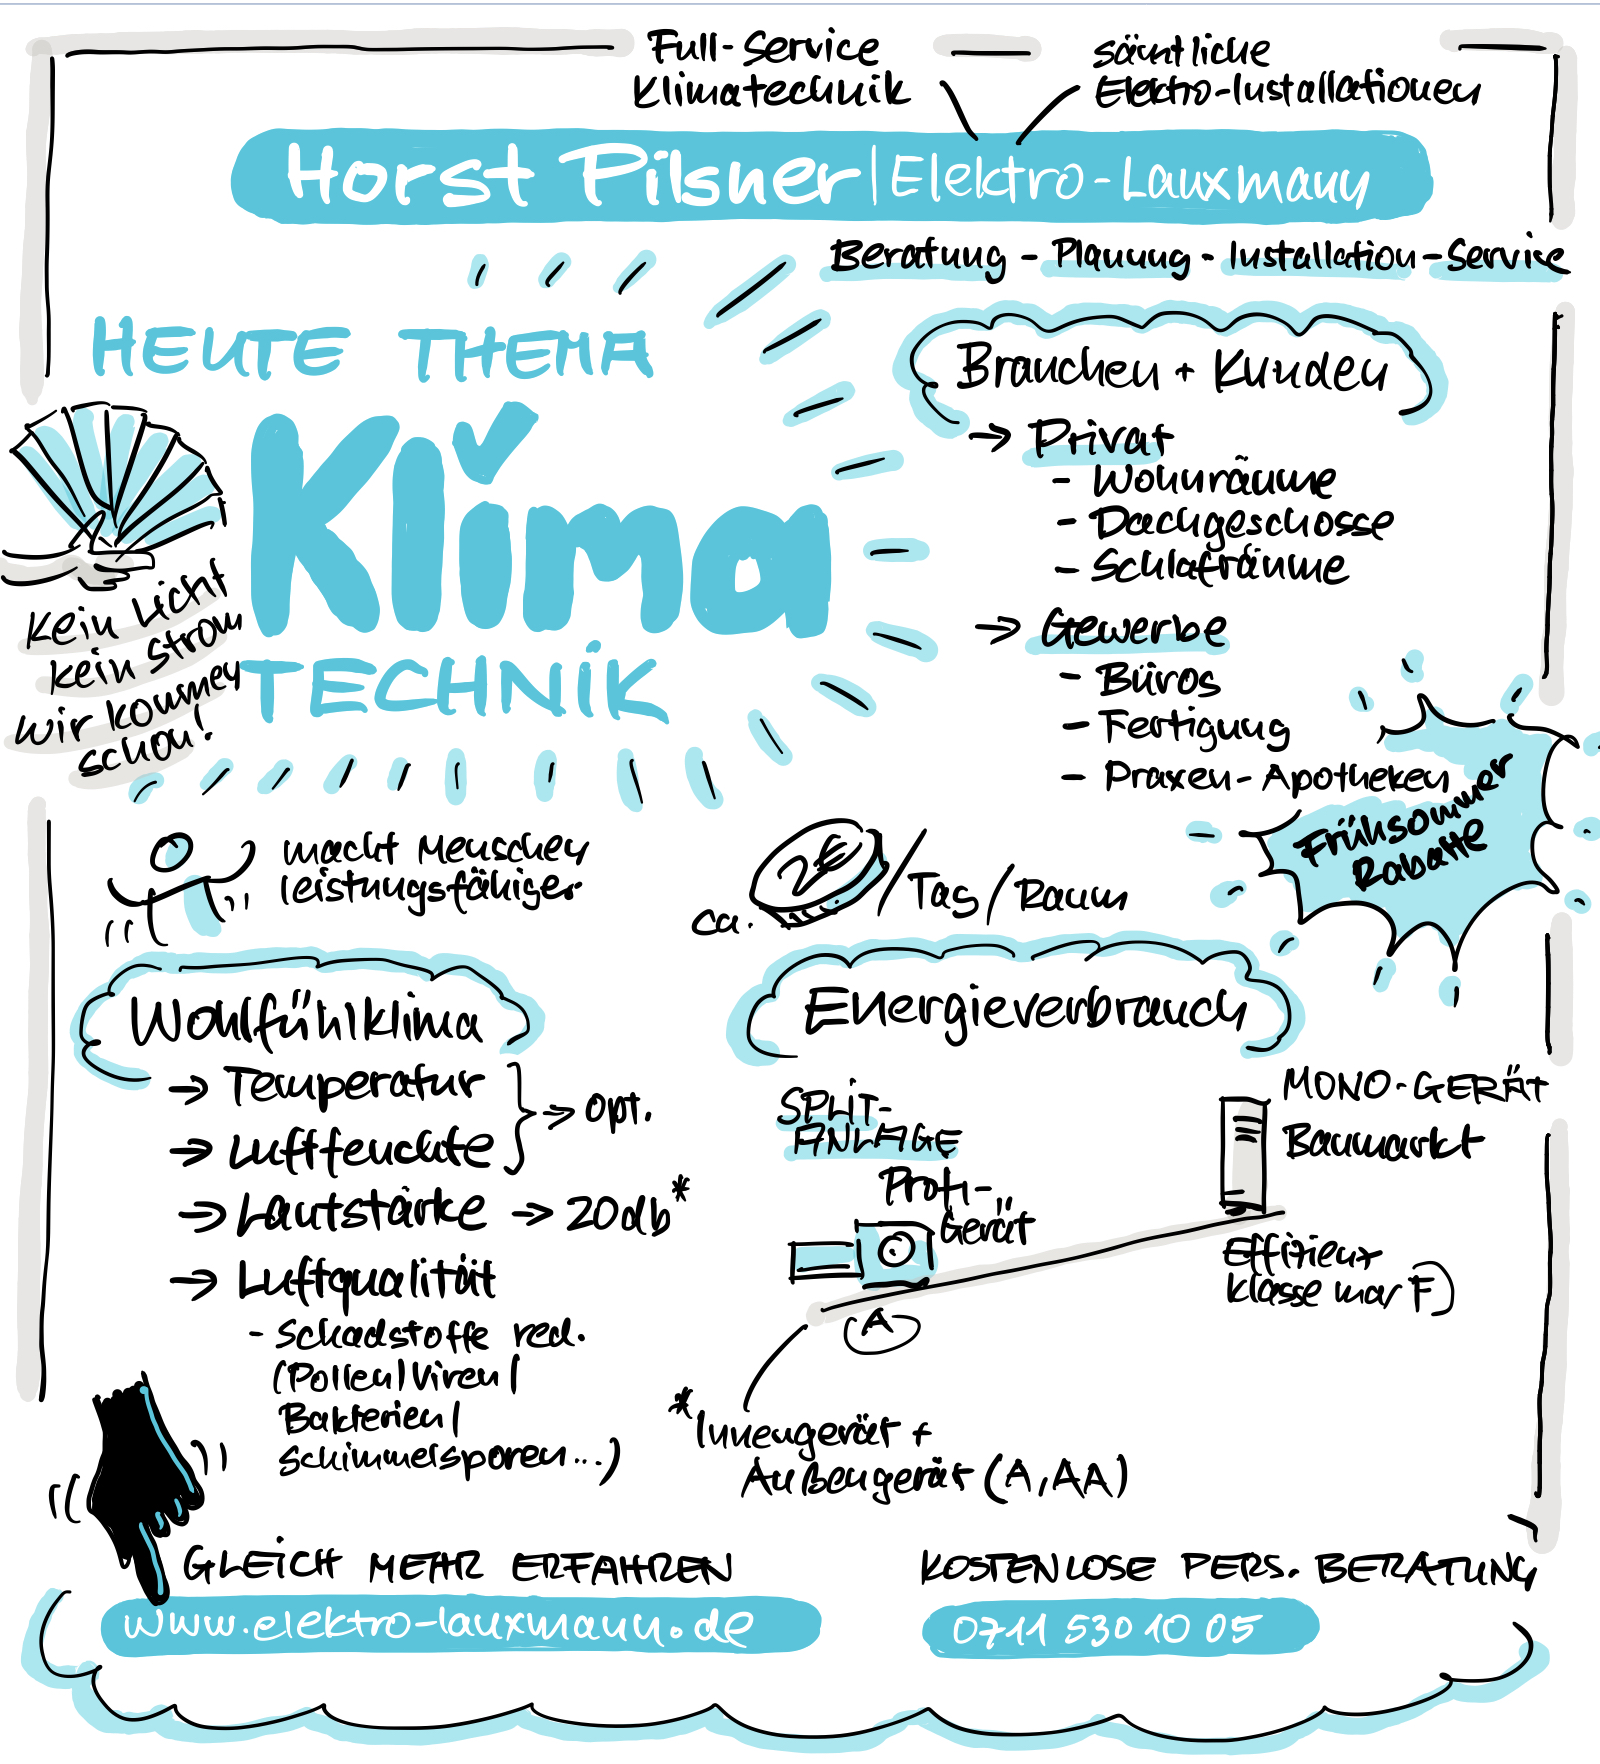 Full-Service
Klimatechnik
sämtliche
Elektro-Installationen
Horst Pilsner | Elektro-Lauxmann
Beratung - Planung - Installation - Service
HEUTE THEMA
Klima
TECHNIK
Kein Licht
kein Strom
wir kommen
schon!
Branchen + Kunden
→ Privat
- Wohnräume
- Dachgeschosse
- Schlafräume
→ Gewerbe
- Büros
- Fertigung
- Praxen - Apotheken
Frühsommer
Rabatte
macht Menschen
leistungsfähiger
ca. 2€ / Tag / Raum
Wohlfühlklima
→ Temperatur
→ Luftfeuchte
→ opt.
→ Lautstärke → 20db*
→ Luftqualität
- Schadstoffe red.
(Pollen | Viren |
Bakterien |
Schimmelsporen...)
Energieverbrauch
SPLIT-
ANLAGE
Profi-
Gerät
A
MONO-GERÄT
Baumarkt
Effizienz
klasse max F)
*Innengerät +
Außengerät (A, AA)
GLEICH MEHR ERFAHREN
www.elektro-lauxmann.de
KOSTENLOSE PERS. BERATUNG
0711 530 10 05